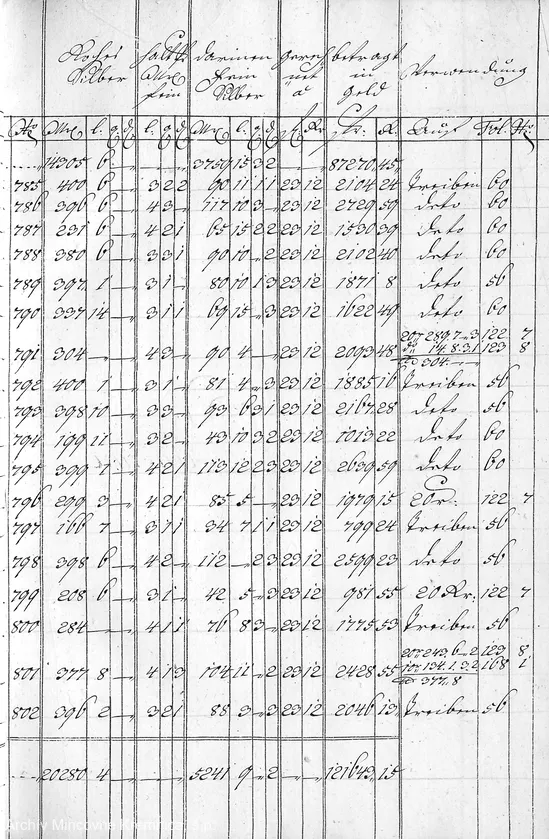 Rohes halt p darinnen gerech betragt
Silber Mrk fein net in Verwendung
fein Silber a geld
No Mrk l. q d l. q d Mrk l. q d f. Kr fr: K. Auf Fol. No
14305 6 3750 15 3 2 87270 45
785 400 6 3 2 2 90 11 1 1 23 12 2104 24 Treiben 60
786 396 6 4 3 117 10 3 23 12 2729 59 deto 60
787 231 6 4 2 1 65 15 2 2 23 12 1530 39 deto 60
788 380 6 3 3 1 90 10 2 23 12 2102 40 deto 60
789 397 1 3 1 80 10 1 3 23 12 1871 8 deto 56
790 337 14 3 1 1 69 15 3 23 12 1622 49 deto 60
20r 289. 7. 3 122 7
791 304 4 3 90 4 23 12 2093 48 14. 8. 3. 1 123 8
304
792 400 1 3 1 81 4 3 23 12 1885 16 Treiben 56
793 398 10 3 3 93 6 3 1 23 12 2167 28 deto 56
794 199 11 3 2 43 10 3 2 23 12 1013 22 deto 60
795 399 1 4 2 1 113 12 2 3 23 12 2639 59 deto 60
796 299 3 4 2 1 85 5 23 12 1979 15 20r. 122 7
797 166 7 3 1 1 34 7 1 1 23 12 799 24 Treiben 56
798 398 6 4 2 112 2 3 23 12 2599 23 deto 56
799 208 6 3 1 42 5 3 23 12 981 55 20 Kr. 122 7
800 284 4 1 1 76 8 3 23 12 1775 53 Treiben 56
20r 243. 6. 2 123 8
801 377 8 4 1 3 104 11 2 23 12 2428 55 10r 134. 1. 3. 2 168 1
377. 8
802 396 2 3 2 1 88 3 3 23 12 2046 13 Treiben 56
20280 4 5241 9 2 121643 15
Archiv Mincovne Kremnica